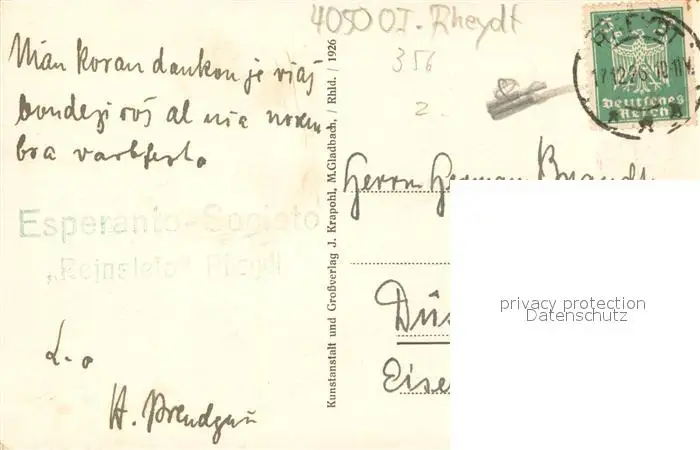 4050 OT. Rheydt
356
2.
Nian koran dankon je viaj
bondeziroj al nia novem-
bra varbfesto.
Esperanto-Societo
Rheydt
L. o
H.
Kunstanstalt und Großverlag J. Krapohl, M.Gladbach, / Rhld. / 1926
17.12.26
Deutsches
Reich
Herrn Herman
Düs
Eise
privacy protection
Datenschutz